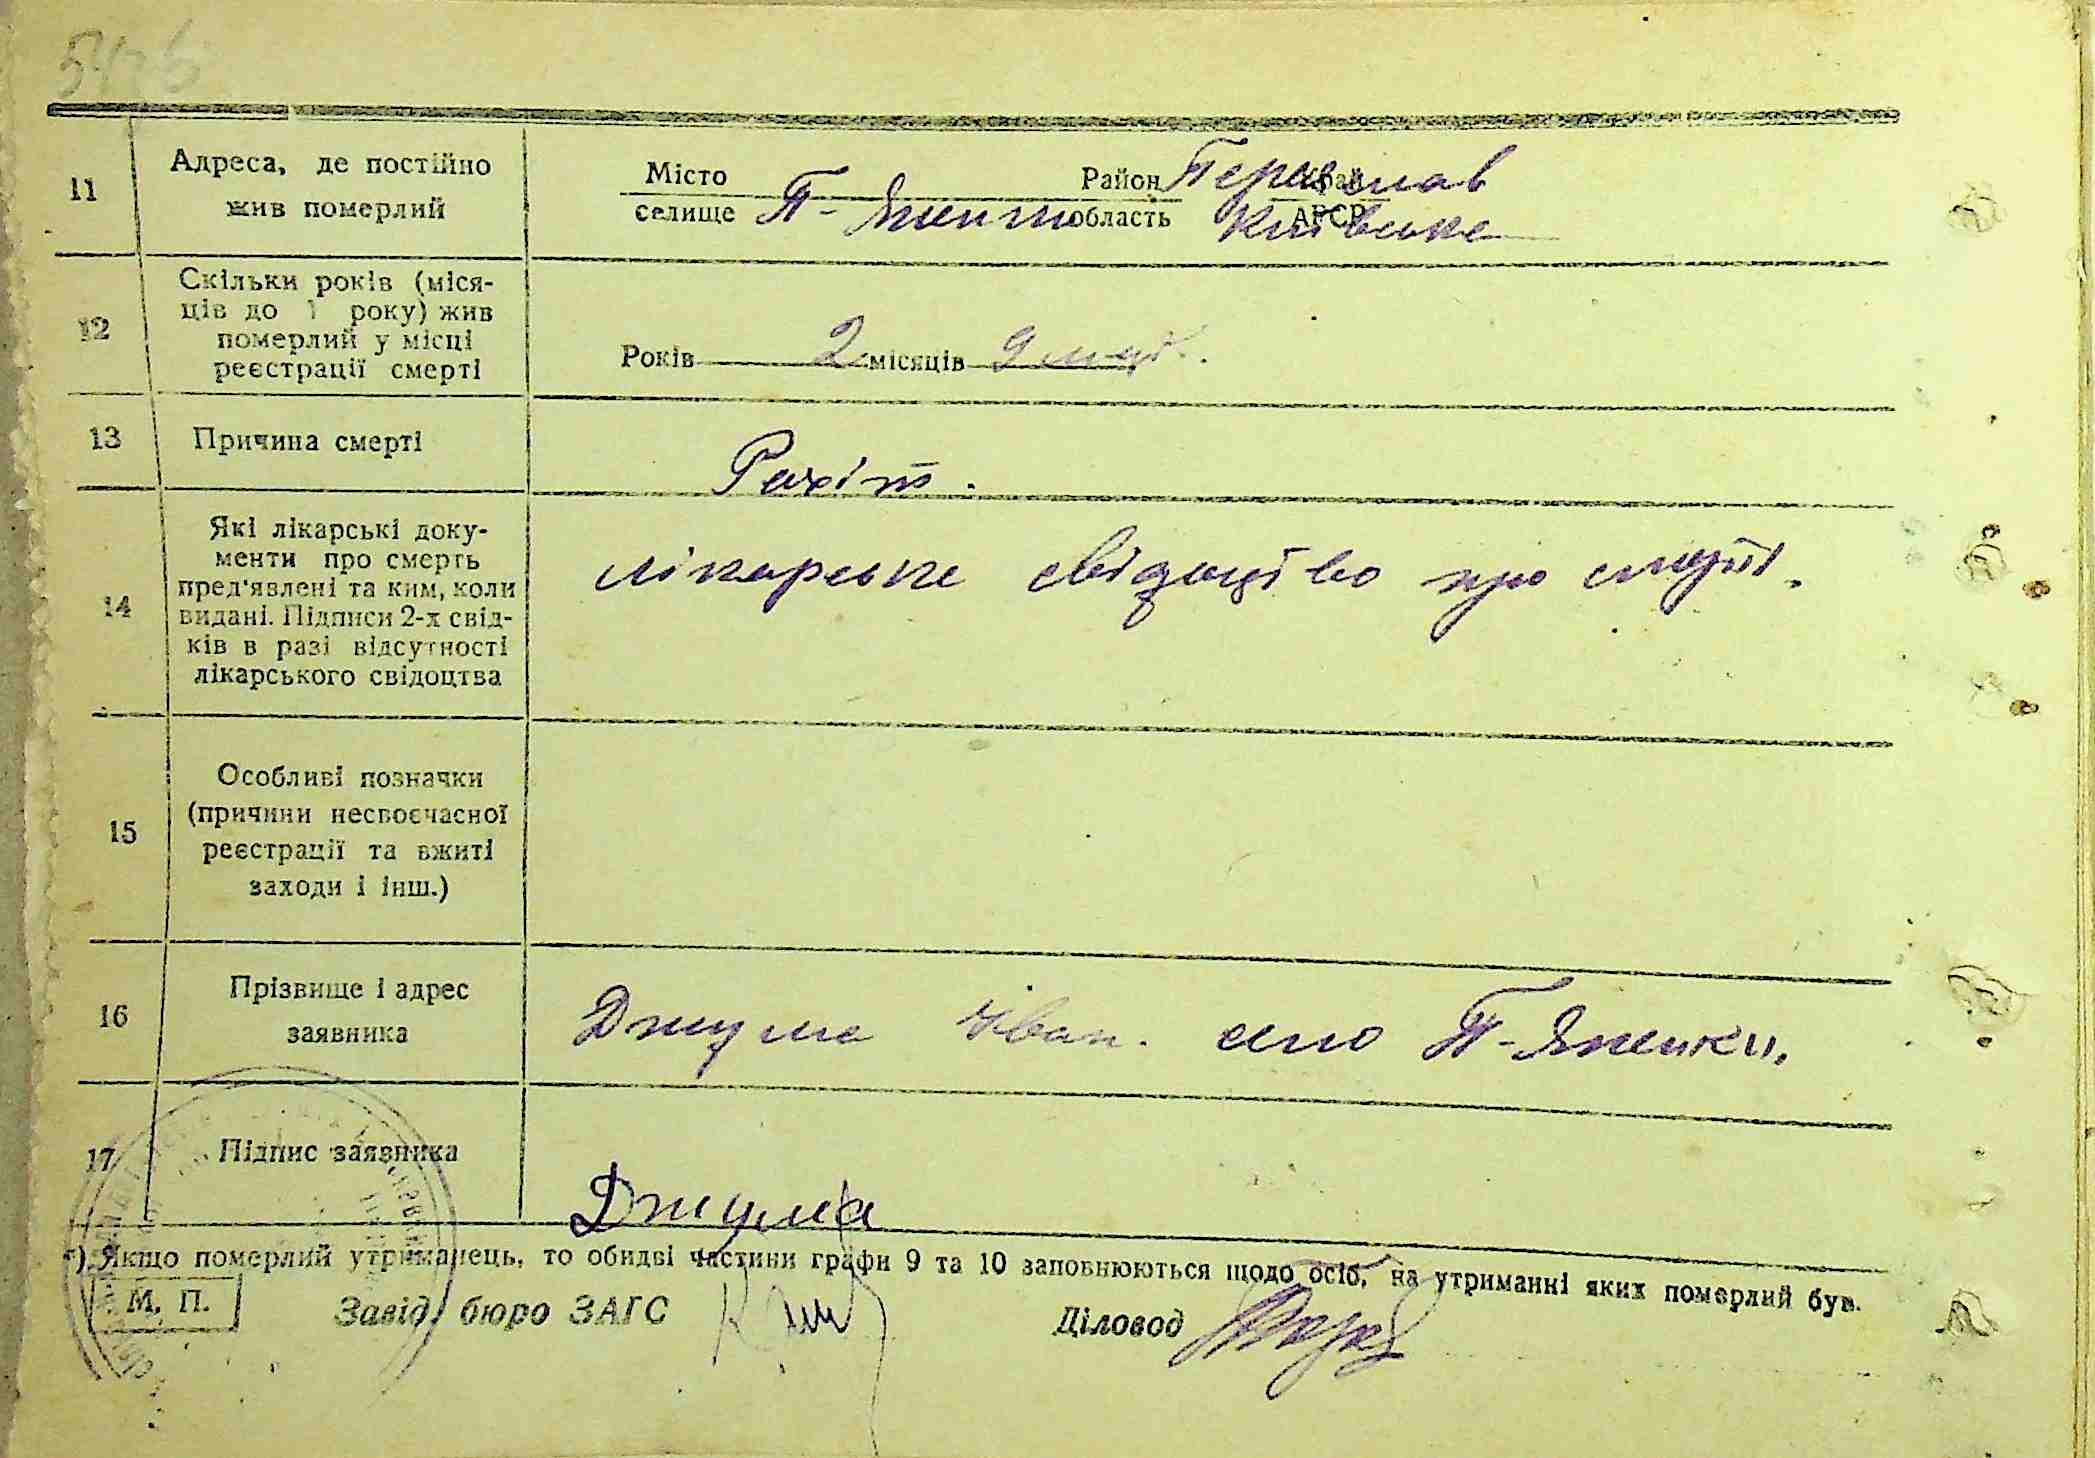 11 Адреса, де постійно
жив померлий
Місто
селище П-Яненки Район Переяслав край
область Київська АРСР
12 Скільки років (міся-
ців до 1 року) жив
померлий у місці
реєстрації смерті
Років 2 місяців 9 міс.
13 Причина смерті
Рахіт.
14 Які лікарські доку-
менти про смерть
пред'явлені та ким, коли
видані. Підписи 2-х свід-
ків в разі відсутності
лікарського свідоцтва
лікарське свідоцтво про смерть.
15 Особливі позначки
(причини несвоєчасної
реєстрації та вжиті
заходи і інш.)
16 Прізвище і адрес
заявника
Джума Іван. село П-Яненки.
17 Підпис заявника
Джума
*). Якщо померлий утриманець, то обидві частини графи 9 та 10 заповнюються щодо осіб, на утриманні яких померлий був.
М. П.
Завід. бюро ЗАГС
Діловод